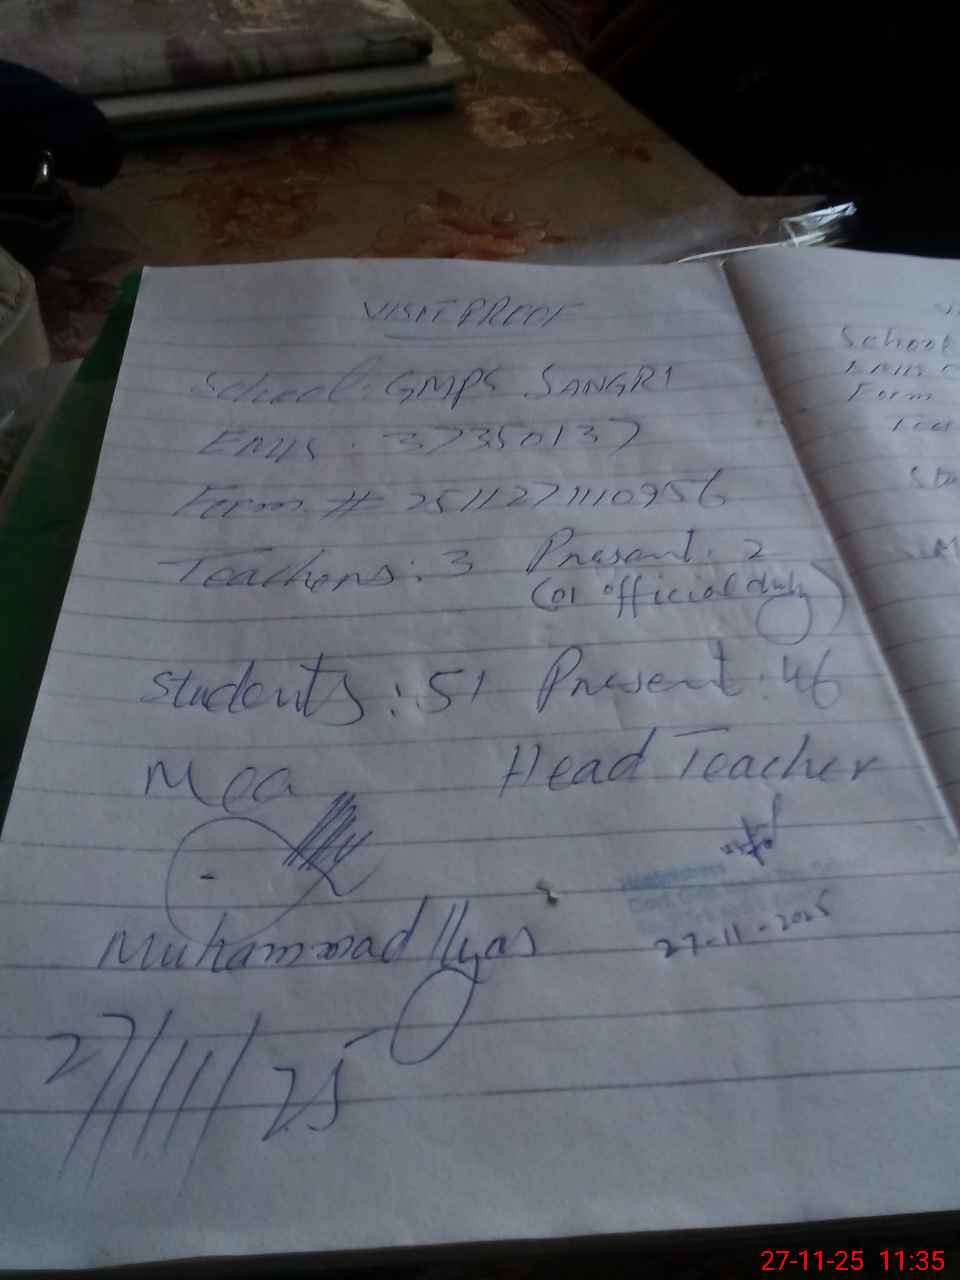 VISIT PROOF
School: GMPS SANGRI
EMIS: 37350137
Form # 2511271110956
Teachers: 3 Present: 2
(01 official duty)
Students: 51 Present: 46
Mea Head Teacher
Muhammad Ilyas
27-11-2025
27/11/25
School
EMIS
Form
27-11-25 11:35